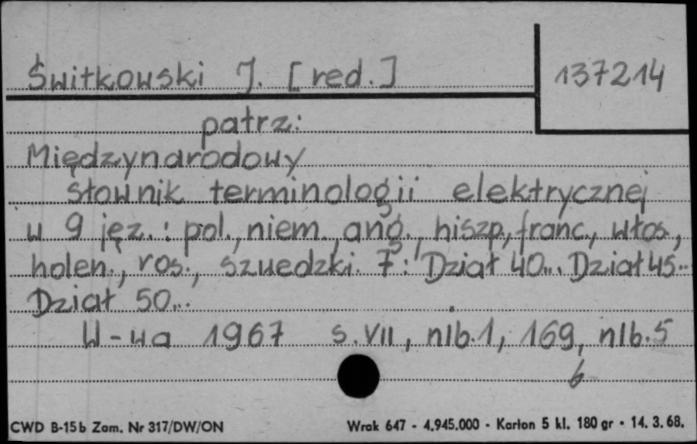 Świtkowski J. [red.]
137214
patrz:
Międzynarodowy
słownik terminologii elektrycznej
w 9 jęz.: pol., niem., ang., hiszp., franc., włos.,
holen., ros., szwedzki. 7: Dział 40... Dział 45...
Dział 50...
W-wa 1967 s. VII, nlb. 1, 169, nlb. 5
6
CWD B-15b Zam. Nr 317/DW/ON
Wrak 647 - 4.945.000 - Karton 5 kl. 180 gr - 14. 3. 68.